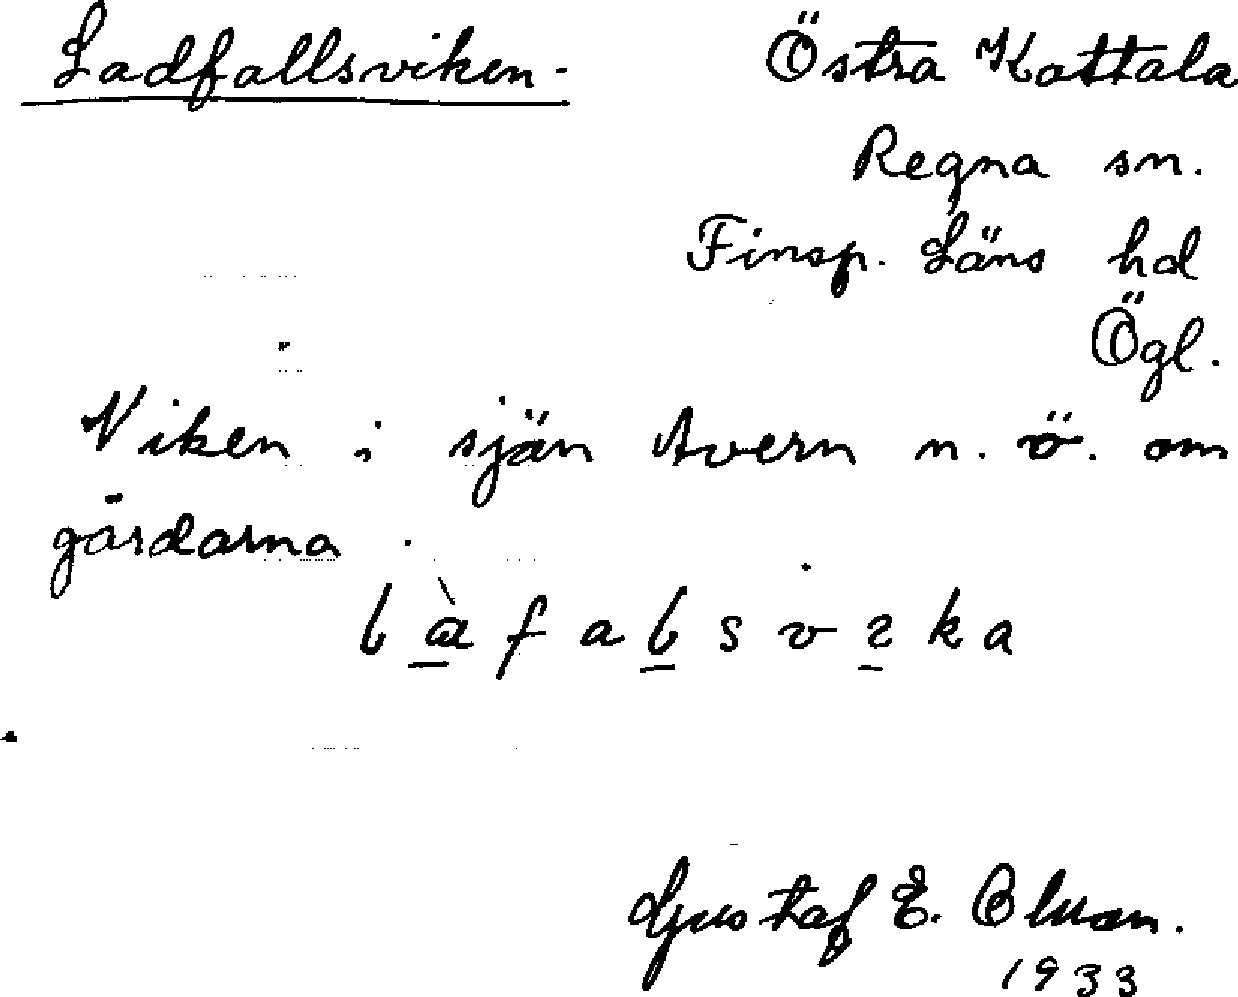 Ladfallsviken. Östra Kattala
Regna sn.
Finsp. Läns hd
Ögl.
Viken i sjän Avern n. ö. om
gårdarna.
Gustaf E.
1933